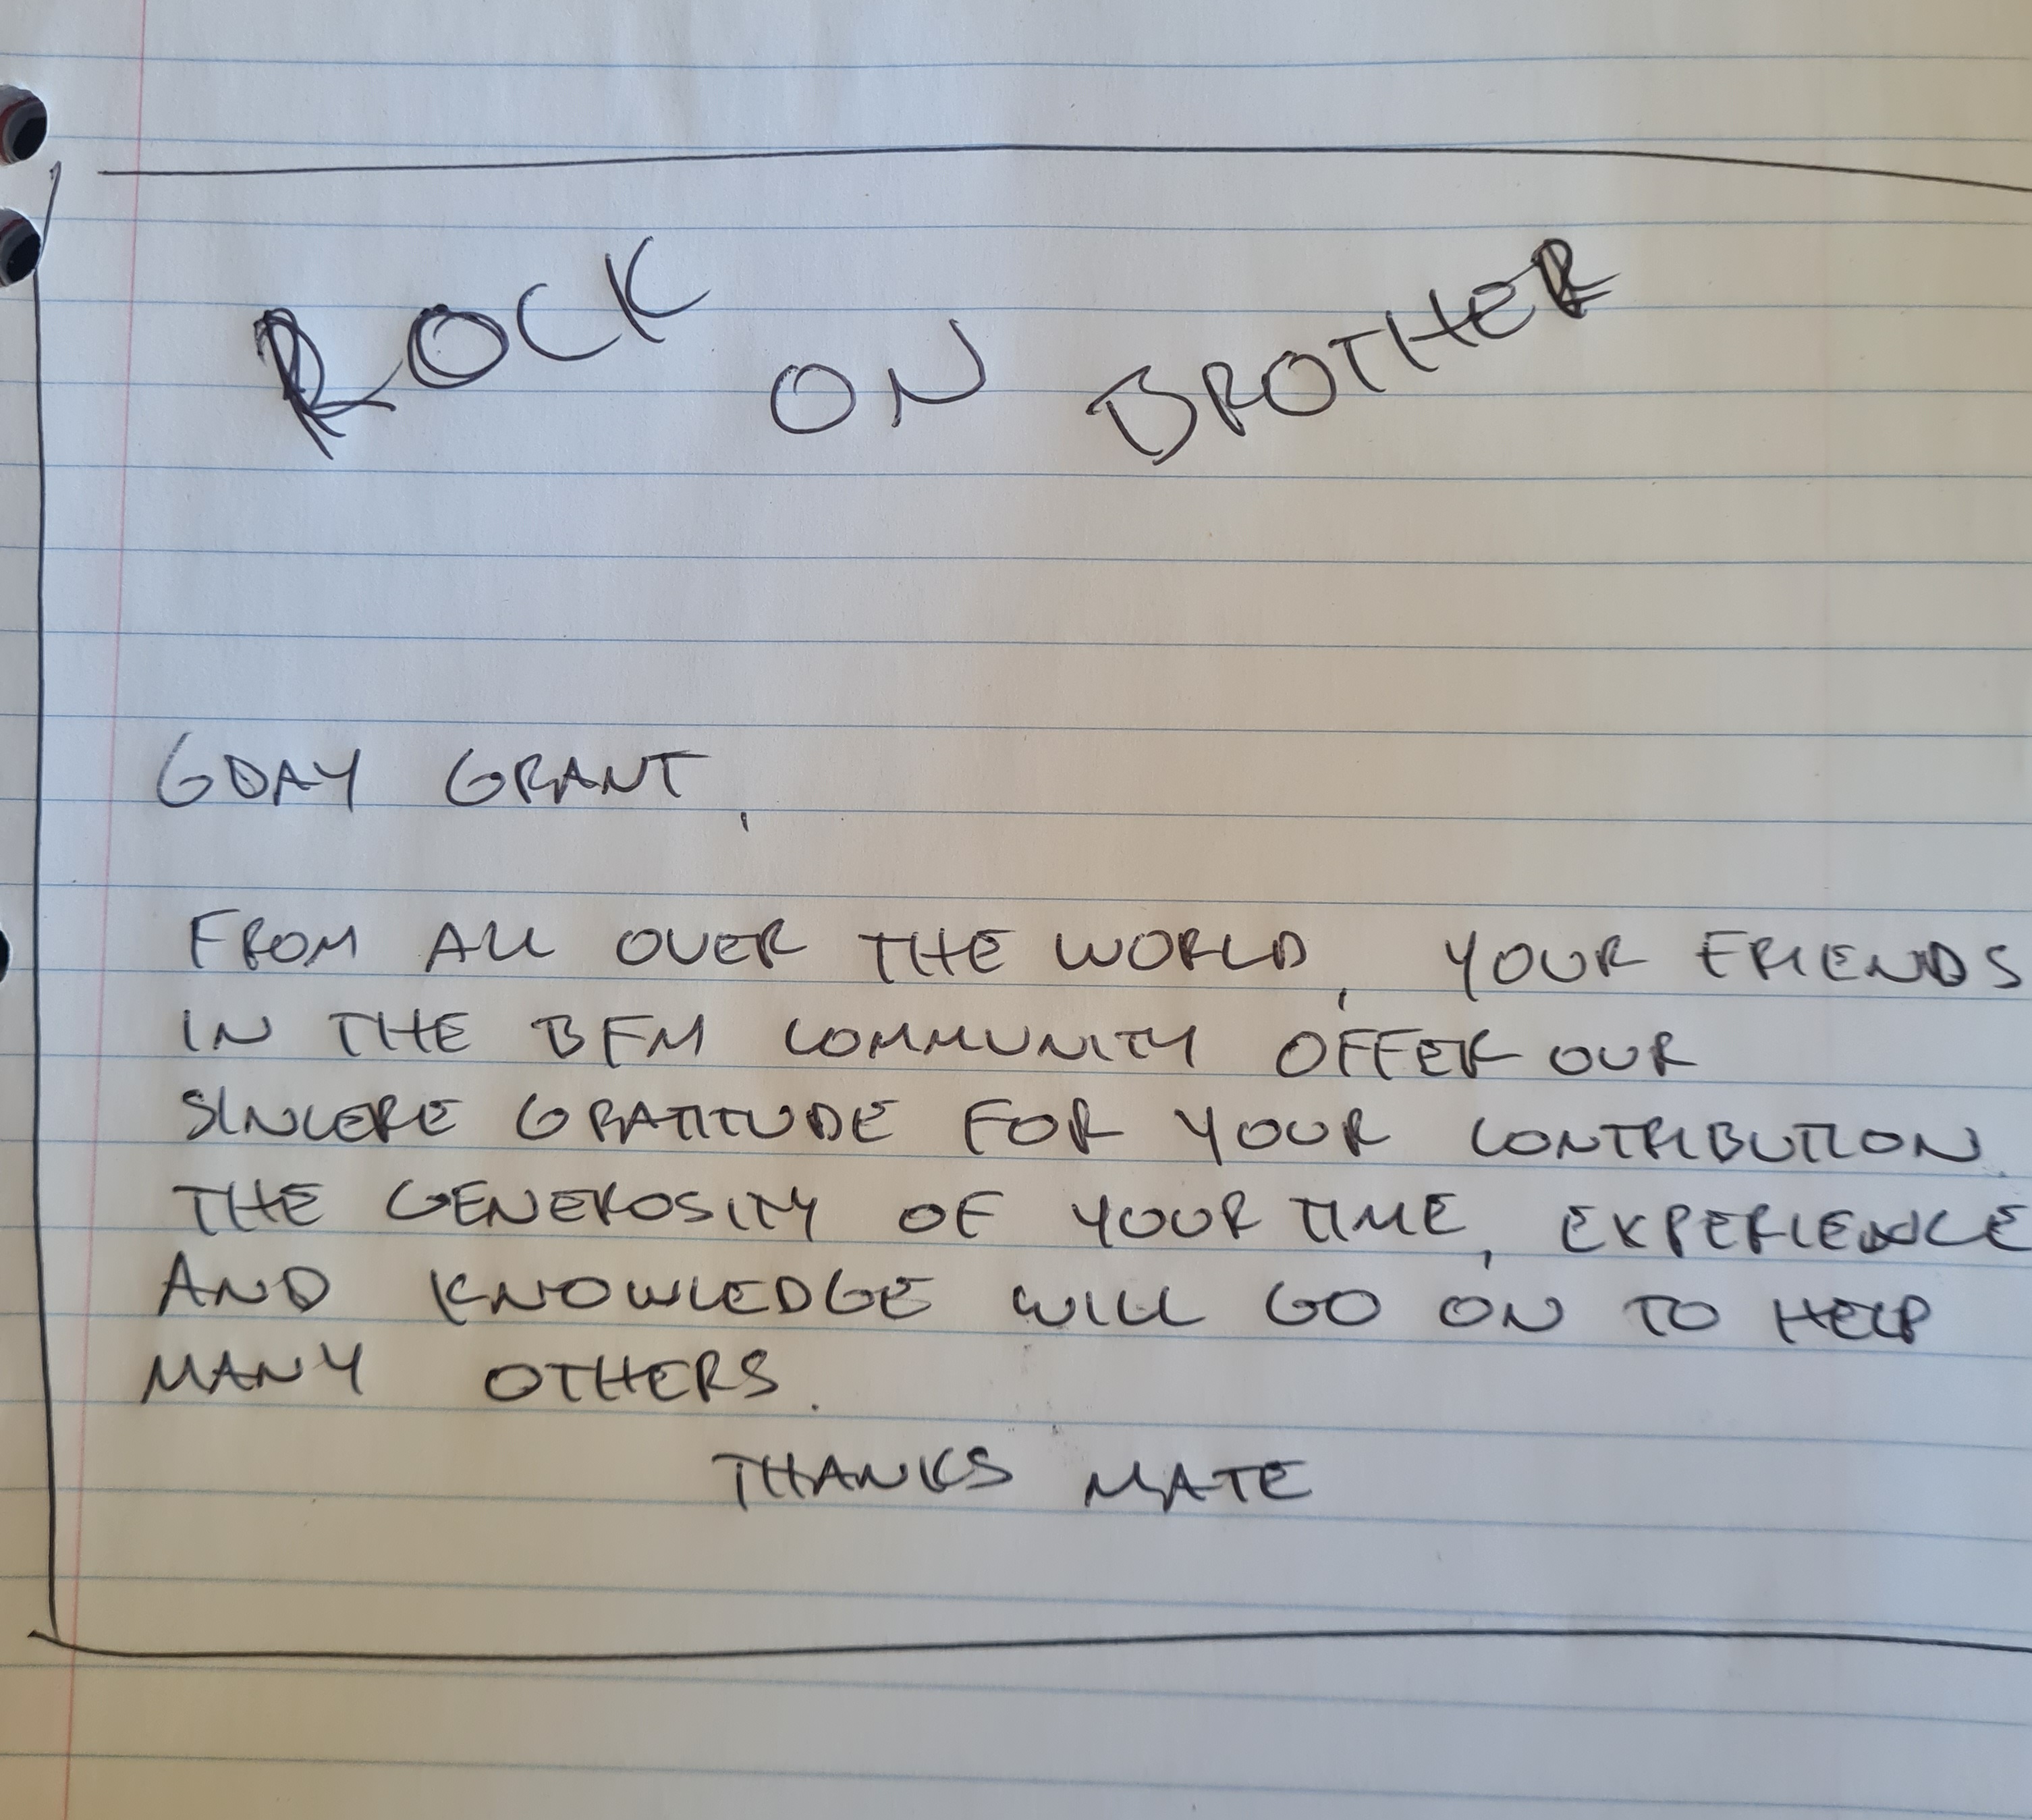 ROCK ON BROTHER
GDAY GRANT,
FROM ALL OVER THE WORLD, YOUR FRIENDS
IN THE BFM COMMUNITY OFFER OUR
SINCERE GRATITUDE FOR YOUR CONTRIBUTION.
THE GENEROSITY OF YOUR TIME, EXPERIENCE
AND KNOWLEDGE WILL GO ON TO HELP
MANY OTHERS.
THANKS MATE